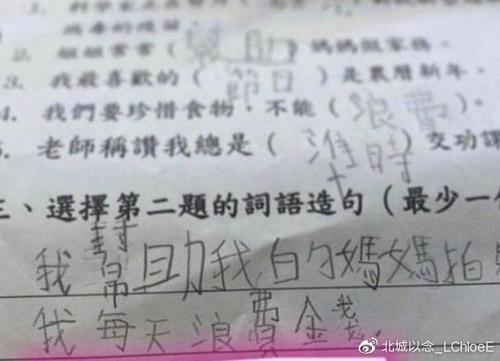 病毒的疫苗。
2. 姐姐常常（幫助）媽媽做家務。
3. 我最喜歡的（節日）是農曆新年。
4. 我們要珍惜食物，不能（浪費）。
5. 老師稱讚我總是（準時）交功課
三、選擇第二題的詞語造句（最少一
我幫助我的媽媽拍
我每天浪費金錢.
@北城以念_LChloeE